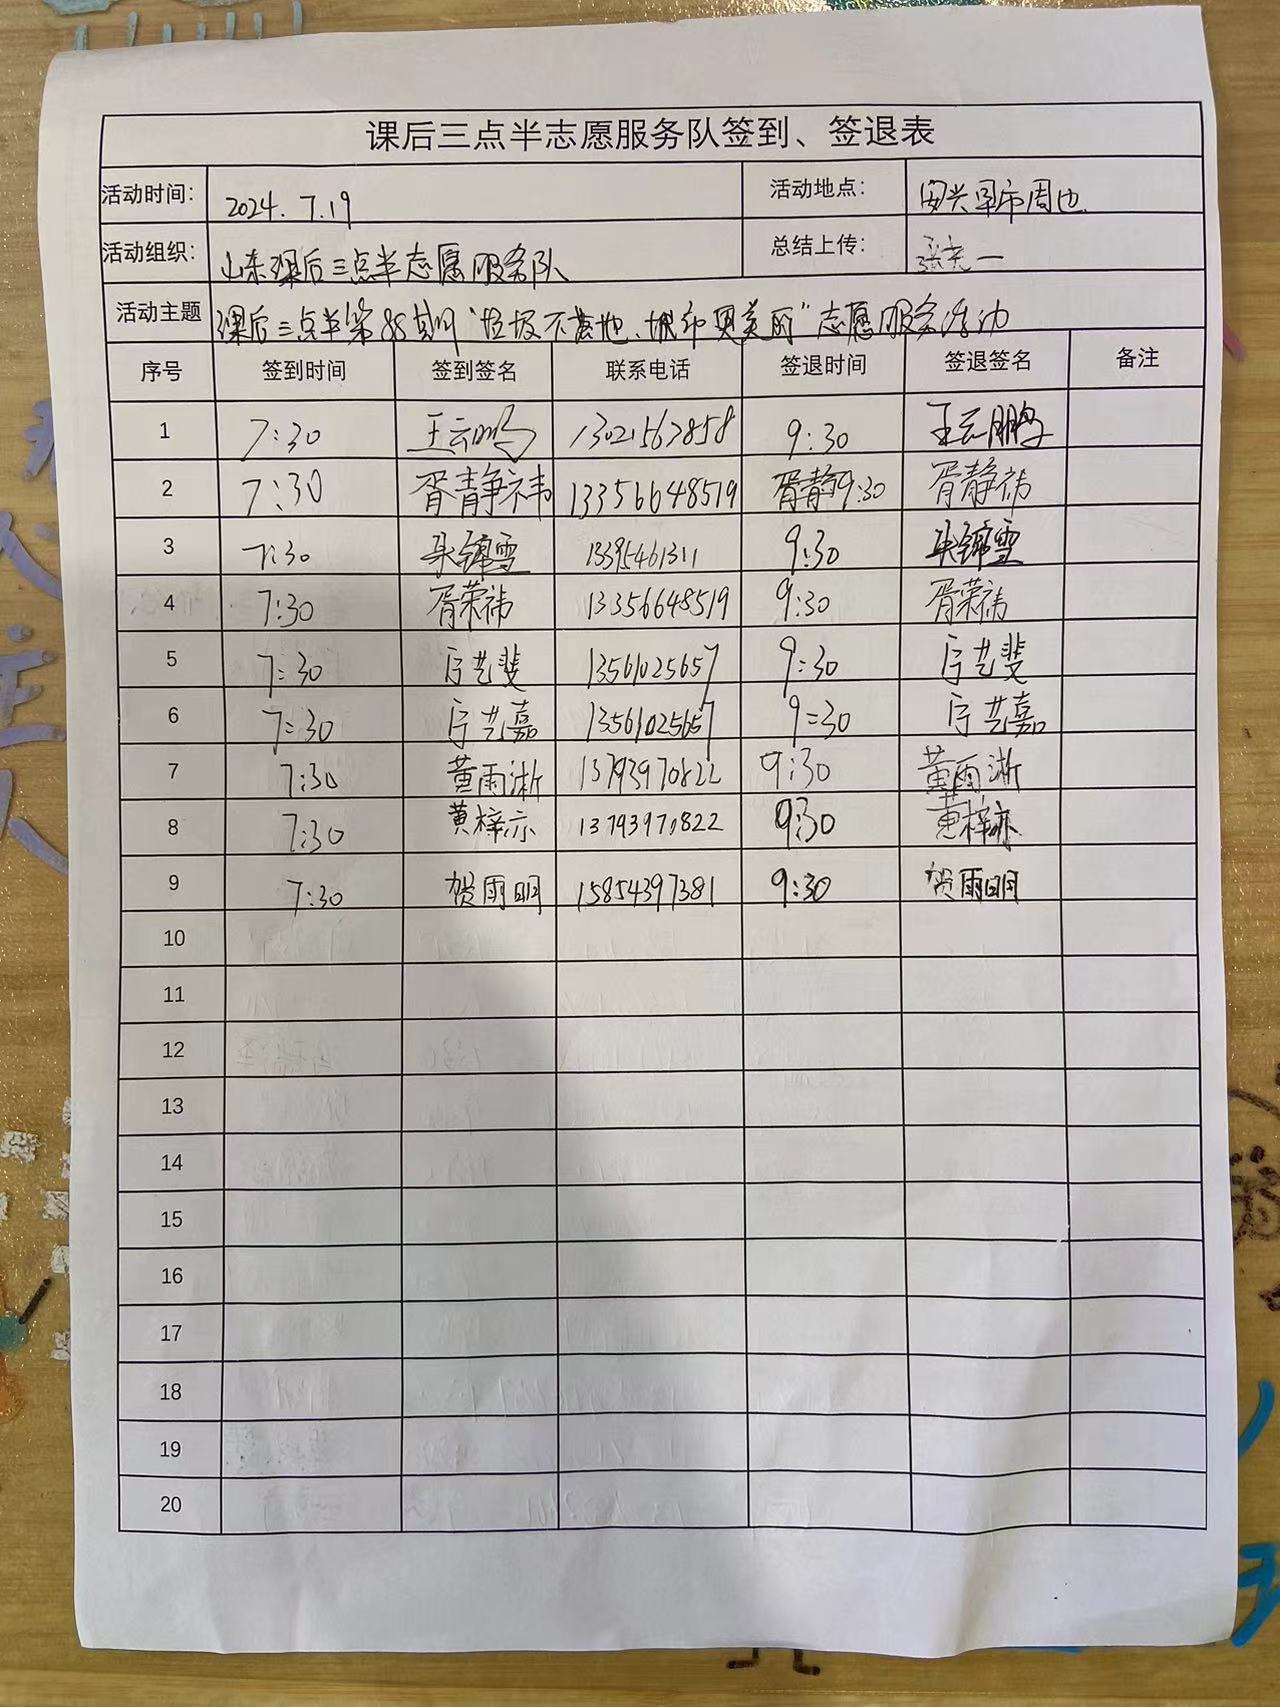 课后三点半志愿服务队签到、签退表
活动时间: 2024.7.19 活动地点: 安兴早市周边
活动组织: 山东课后三点半志愿服务队 总结上传:
活动主题 课后三点半第88期"垃圾不落地、城市更美丽"志愿服务活动
序号 签到时间 签到签名 联系电话 签退时间 签退签名 备注
1 7:30 王云鹏 13021567858 9:30 王云鹏
2 7:30 胥静祎 13356648519 胥静9:30 胥静祎
3 7:30 朱锦雪 13395461311 9:30 朱锦雪
4 7:30 胥荣祎 13356648519 9:30 胥荣祎
5 7:30 艺斐 13561025657 9:30 艺斐
6 7:30 艺嘉 13561025657 9:30 艺嘉
7 7:30 黄雨淅 13793970822 9:30 黄雨淅
8 7:30 黄梓亦 13793970822 9:30 黄梓亦
9 7:30 贺雨明 15854397381 9:30 贺雨明
10
11
12
13
14
15
16
17
18
19
20